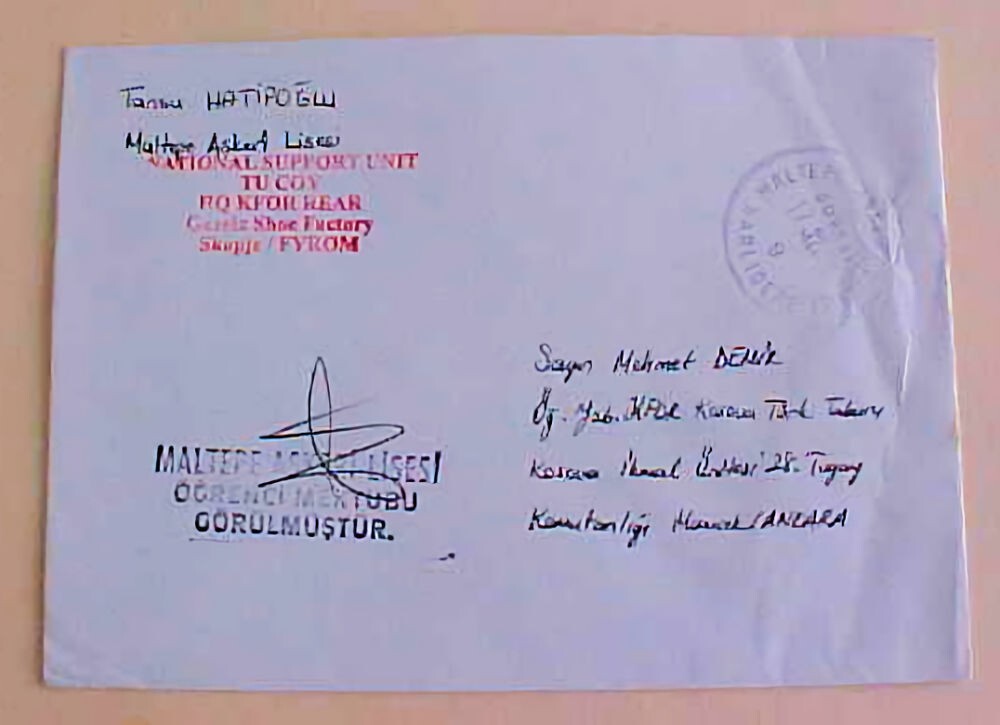 HATİPOĞLU
Maltepe Askerî Lisesi
NATIONAL SUPPORT UNIT
TU COY
HQ KFOR REAR
Shoe Factory
Skopje / FYROM
MALTEPE
Sayın Mehmet DEMİR
KFOR Kosova Türk Taburu
Kosova İkmal Ünitesi 28. Tugay
Komutanlığı Mamak/ANKARA
MALTEPE ASKERİ LİSESİ
ÖĞRENCİ MEKTUBU
GÖRÜLMÜŞTÜR.